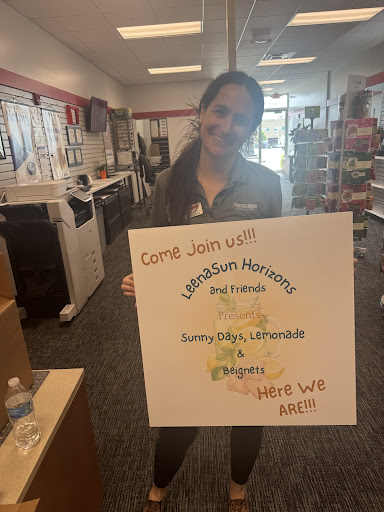 Come Join us!!!
LeenaSun Horizons
and Friends
Presents
Sunny Days, Lemonade
&
Beignets
Here We
ARE!!!